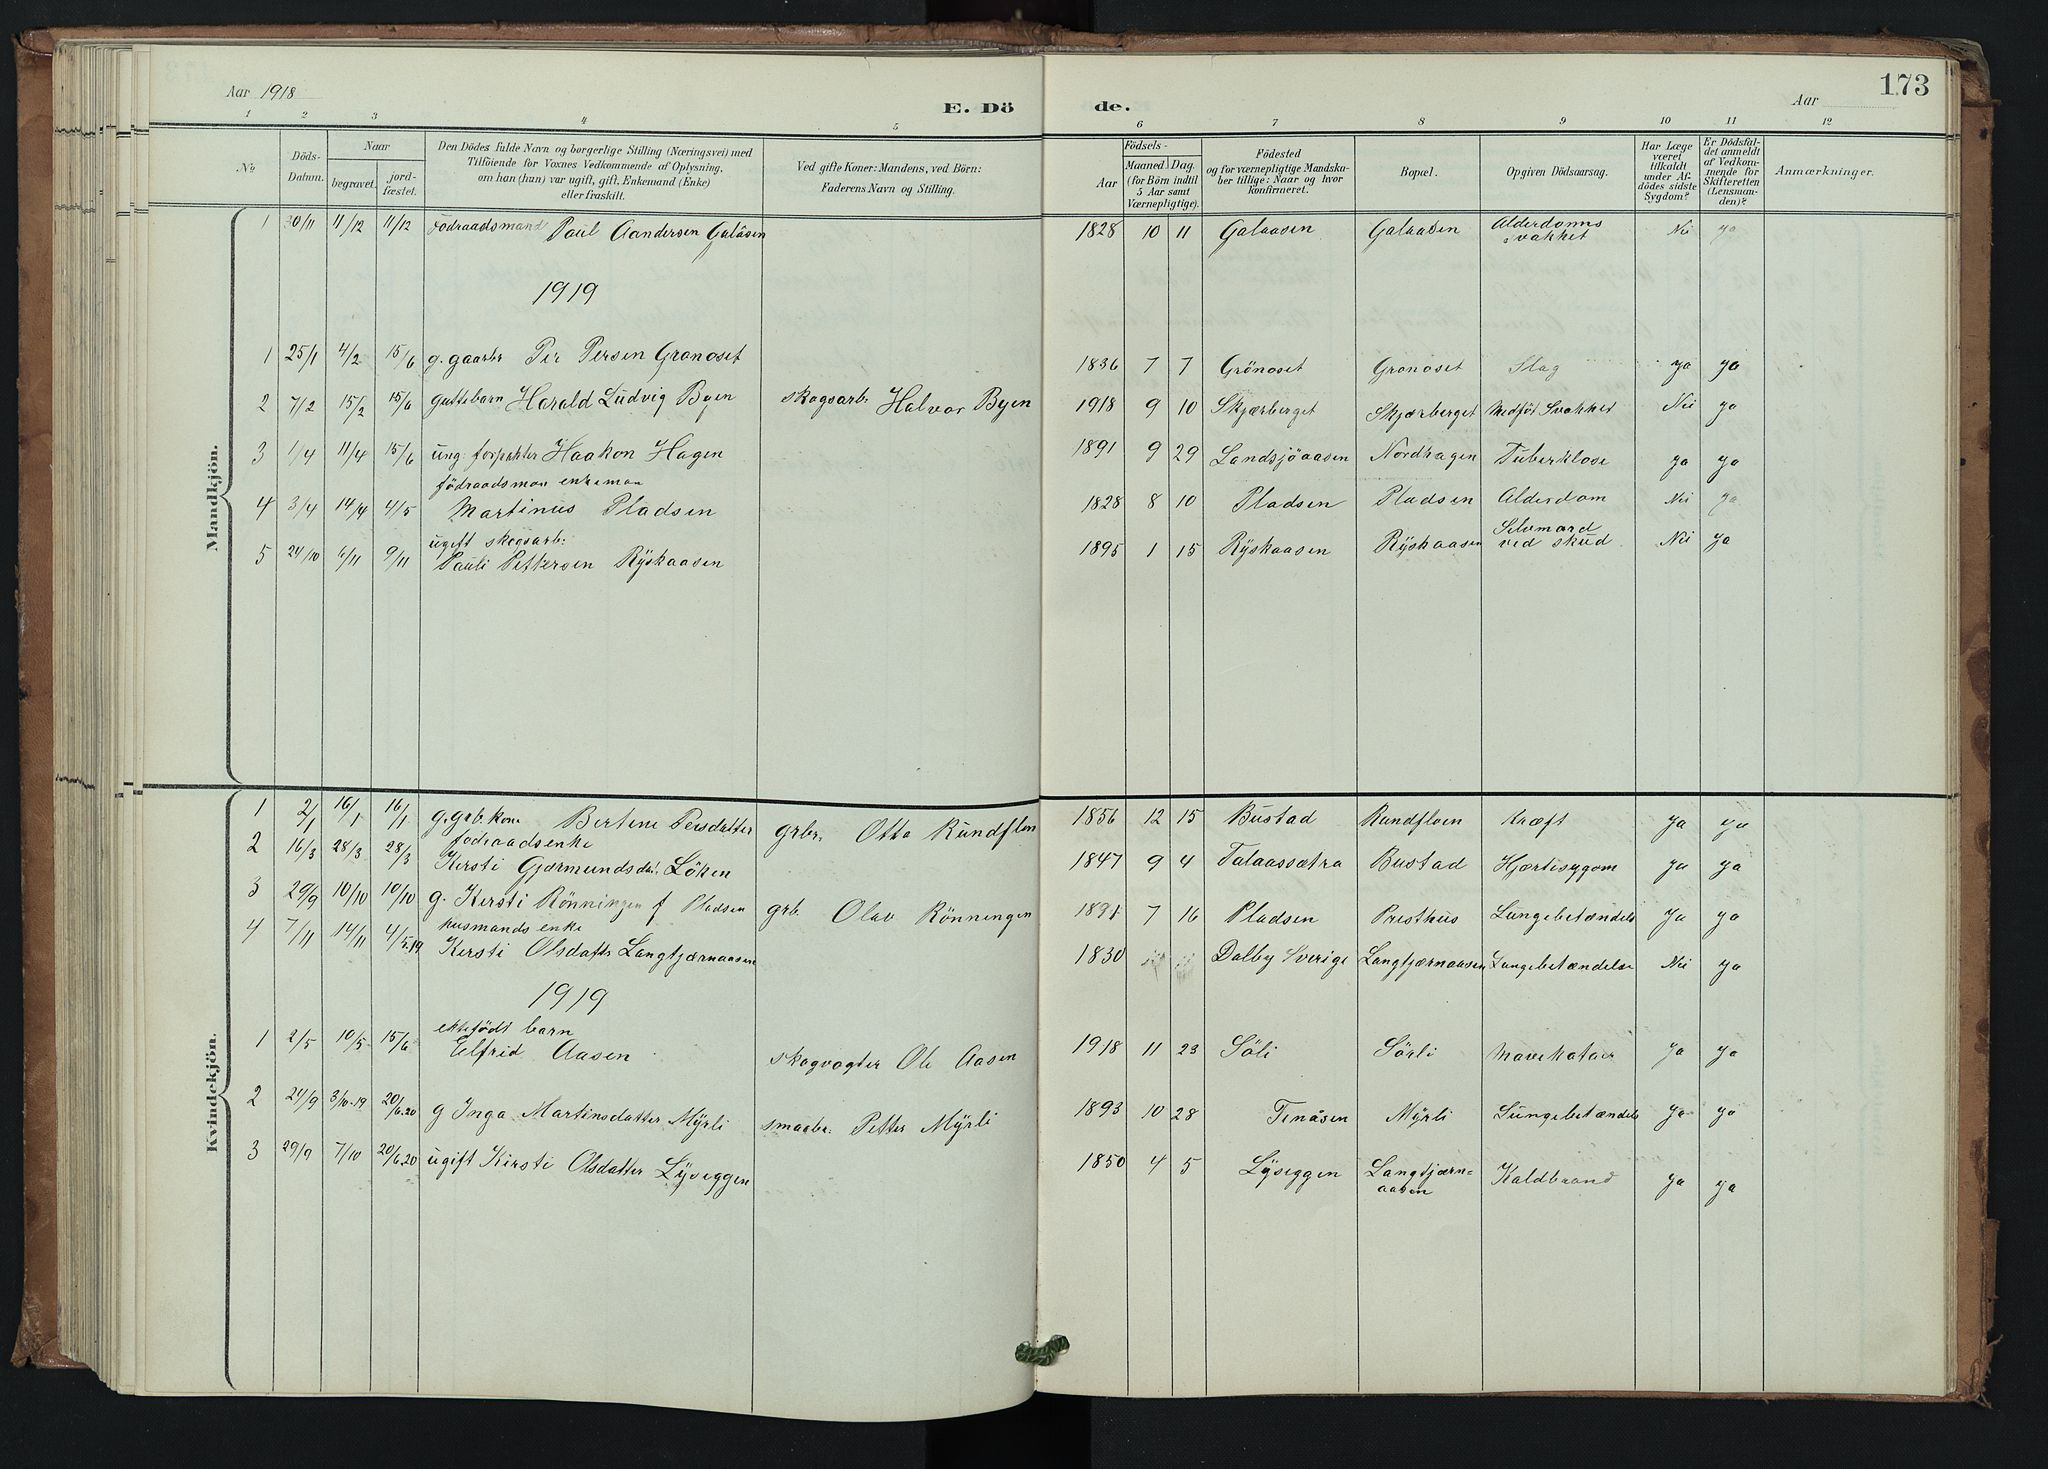 Aar 1918
E. Dö de.
Aar
173
1 2 3 4 5 6 7 8 9 10 11 12
No
Döds-Datum.
Naar
begravet.
jord-fæstet.
Den Dödes fulde Navn og borgerlige Stilling (Næringsvei) med
Tilföiende for Voxnes Vedkommende af Oplysning,
om han (hun) var ugift, gift, Enkemand (Enke)
eller fraskilt.
Ved gifte Koner: Mandens, ved Börn:
Faderens Navn og Stilling.
Födsels-
Aar
Maaned Dag
(for Börn indtil
5 Aar samt
Værnepligtige).
Födested
og for værnepligtige Mandska-
ber tillige: Naar og hvor
konfirmeret.
Bopæl.
Opgiven Dödsaarsag.
Har Læge
været
tilkaldt
under Af-
dödes sidste
Sygdom?
Er Dödsfal-
det anmeldt
af Vedkom-
mende for
Skifteretten
(Lensman-
den)?
Anmærkninger.
Mandkjön.
1 30/11 11/12 11/12 födraadsmand Paul Aandersen Galåsen 1828 10 11 Galaasen Galaasen Alderdoms svakhet Nei ja
1919
1 25/1 4/2 15/6 g. gaarbr Per Persen Gronoset 1836 7 7 Grönoset Gronoset Slag ja ja
2 7/2 15/2 15/6 guttebarn Harald Ludvig Byen skogsarb. Halvor Byen 1918 9 10 Skjærberget Skjærberget Medföt Svakhet Nei ja
3 1/4 11/4 15/6 ung. forpakter Haakon Hagen 1891 9 29 Landsjöaasen Nordhagen Tuberklose ja ja
födraadsman enkeman
4 3/4 14/4 4/5 Martinus Pladsen 1828 8 10 Pladsen Pladsen Alderdom Nei ja
ugift skogsarb:
5 24/10 6/11 9/11 Pauli Pettersen Ryskaasen 1895 1 15 Ryskaasen Ryskaasen Selvmord ved skud Nei ja
Kvindekjön.
1 2/1 16/1 16/1 g. grb. kone Bertene Persdatter grbr. Otto Rundfloen 1856 12 15 Bustad Rundfloen Kræft ja ja
födraadsenke
2 16/3 28/3 28/3 Kersti Gjermundsdat. Löken 1847 9 4 Talaassætra Bustad Hjertesygom ja ja
3 29/9 10/10 10/10 g. Kersti Rönningen f Pladsen grb. Olav Rönningen 1891 7 16 Pladsen Presthus Lungebetændels ja ja
husmands enke
4 7/11 14/11 4/5.19 Kersti Olsdatter Langtjærnaasen 1830 Dalby Sverige Langtjærnaasen Lungebetændelse Nei ja
1919
ektefödt barn
1 2/5 10/5 15/6 Elfrid Aasen skogvogter Ole Aasen 1918 11 23 Söli Sörli Mavekatar ja ja
2 24/9 3/10-19 20/6.20 g Inga Martinsdatter Myrli smaabr. Petter Myrli 1893 10 28 Tenåsen Myrli Lungebetændels ja ja
3 29/9 7/10 20/6.20 ugift Kersti Olsdatter Lyseggen 1850 4 5 Lyseggen Langtjærn=aasen Kaldbrand ja ja